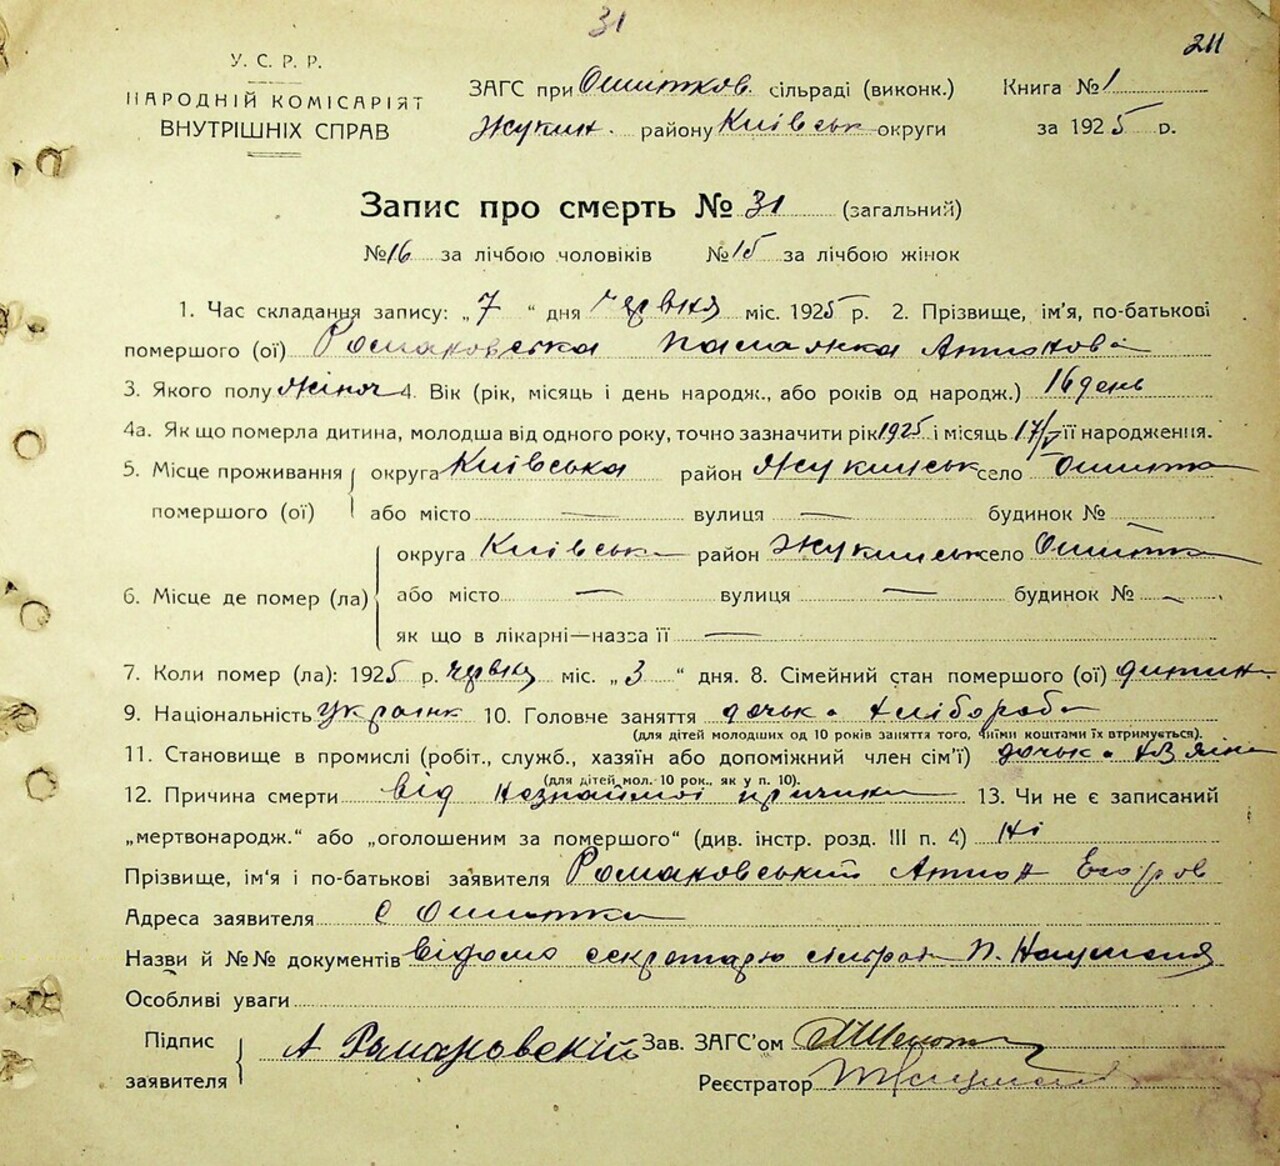 31
211
У. С. Р. Р.
НАРОДНІЙ КОМІСАРІЯТ
ВНУТРІШНІХ СПРАВ
ЗАГС при Ошитков. сільраді (виконк.)
Жукин. району Київськ округи
Книга № 1
за 1925 р.
Запис про смерть № 31 (загальний)
№ 16 за лічбою чоловіків № 15 за лічбою жінок
1. Час складання запису: „7“ дня червня міс. 1925 р. 2. Прізвище, ім'я, по-батькові
помершого (ої) Романовська Антонова
3. Якого полу жіноч 4. Вік (рік, місяць і день народж., або років од народж.) 16 день
4а. Як що померла дитина, молодша від одного року, точно зазначити рік 1925 і місяць 17/V її народження.
5. Місце проживання помершого (ої) округа Київська район Жукинськ село Ошитки
або місто — вулиця — будинок № —
6. Місце де помер (ла) округа Київськ район Жукинськ село Ошитки
або місто — вулиця — будинок № —
як що в лікарні—назва її —
7. Коли помер (ла): 1925 р. червня міс. „3“ дня. 8. Сімейний стан помершого (ої) дитин
9. Національність українк 10. Головне заняття дочька хлібороба
(для дітей молодших од 10 років заняття того, чиїми коштами їх втримується).
11. Становище в промислі (робіт., служб., хазяїн або допоміжний член сім'ї) дочька
(для дітей мол. 10 рок., як у п. 10).
12. Причина смерти від незнайомої причини 13. Чи не є записаний
„мертвонародж.“ або „оголошеним за помершого“ (див. інстр. розд. III п. 4) Ні
Прізвище, ім'я і по-батькові заявителя Романовський Антон Егоров
Адреса заявителя с Ошитки
Назви й №№ документів відомо секретарю сільради П.
Особливі уваги
Підпис заявителя А Романовскій Зав. ЗАГС'ом
Реєстратор